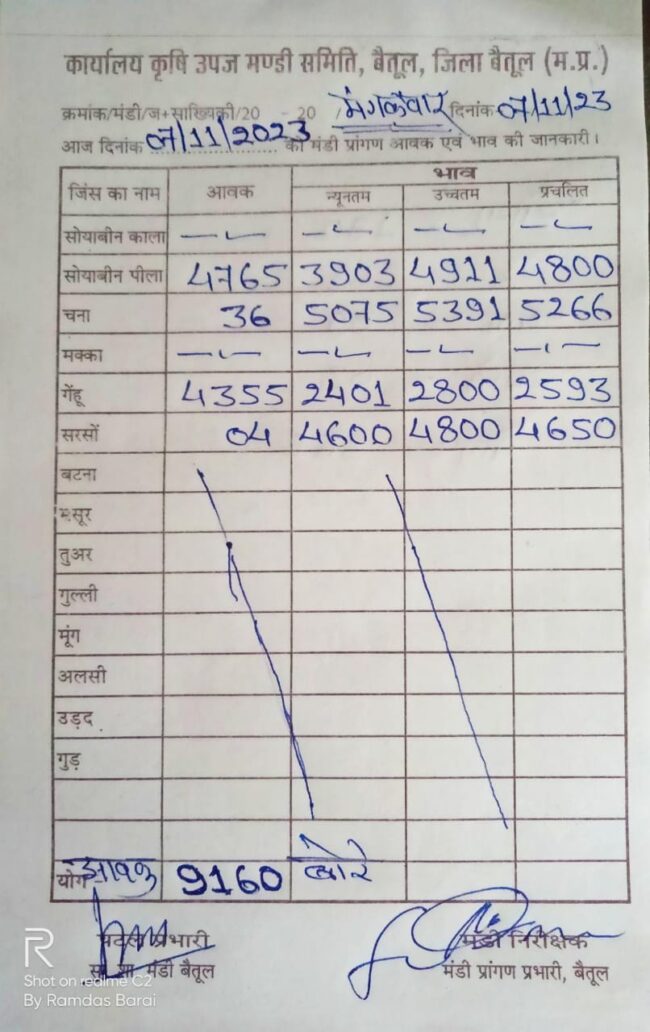 कार्यालय कृषि उपज मण्डी समिति, बैतूल, जिला बैतूल (म.प्र.)
क्रमांक/मंडी/ज+साख्यिकी/20 - 20 / मंगलवार दिनांक 07/11/23
आज दिनांक 07/11/2023 को मंडी प्रांगण आवक एवं भाव की जानकारी।
जिंस का नाम आवक भाव
न्यूनतम उच्चतम प्रचलित
सोयाबीन काला
सोयाबीन पीला 4765 3903 4911 4800
चना 36 5075 5391 5266
मक्का
गेंहू 4355 2401 2800 2593
सरसों 04 4600 4800 4650
बटना
मसूर
तुअर
गुल्ली
मूंग
अलसी
उड़द
गुड़
योग आवक 9160 बोरे
प्रभारी मंडी निरीक्षक
मंडी बैतूल मंडी प्रांगण प्रभारी, बैतूल
R
Shot on realme C2
By Ramdas Barai